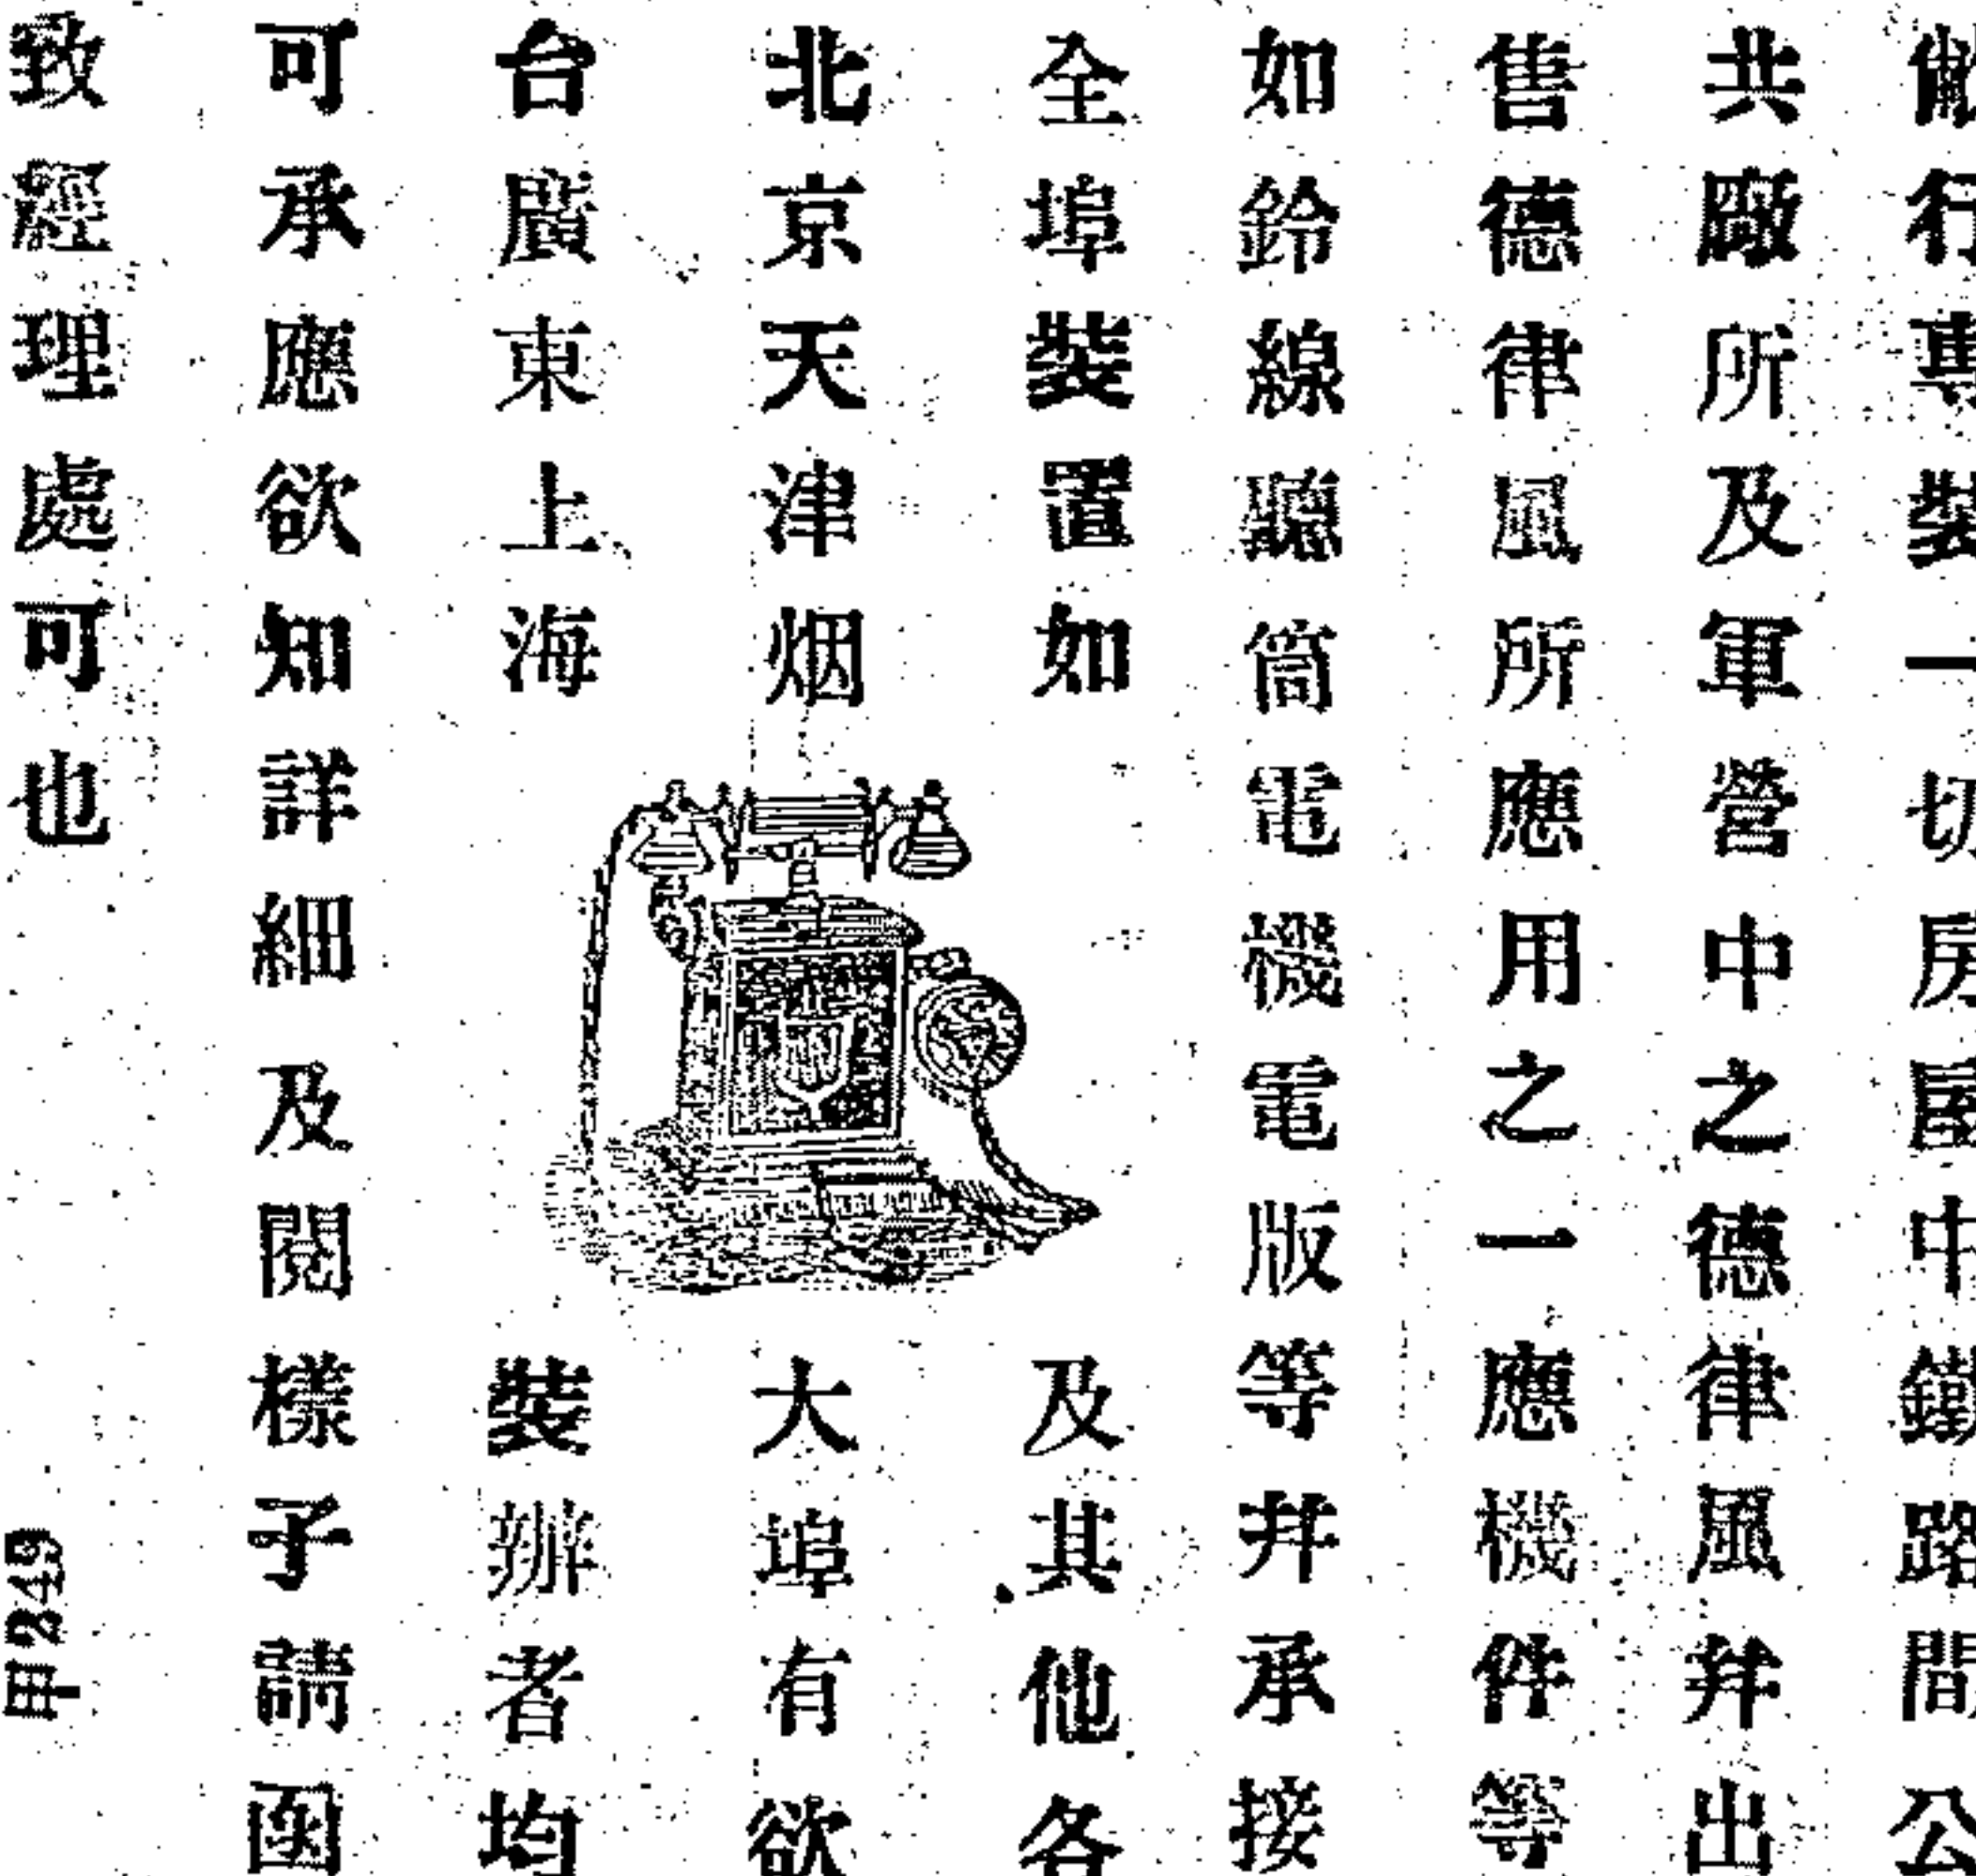 敝行專裝一切房屋中鐵路間公
共廠所及軍營中之德律風幷出
售德律風所應用之一應機件等
如鈴線聽筒電機電版等幷承接
全埠裝置如及其他各
北京天津烟大埠有欲
台廣東上海裝辦者均
可承應欲知詳細及閱樣子請函
致經理處可也
甲249